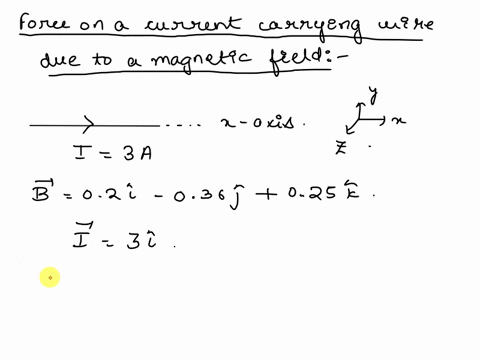 Force on a current carryeng wire
due to a magnetic field:-
.... x-axis.
y
x
z
I = 3A
B⃗ = 0.2î - 0.36ĵ + 0.25k̂.
I⃗ = 3î.